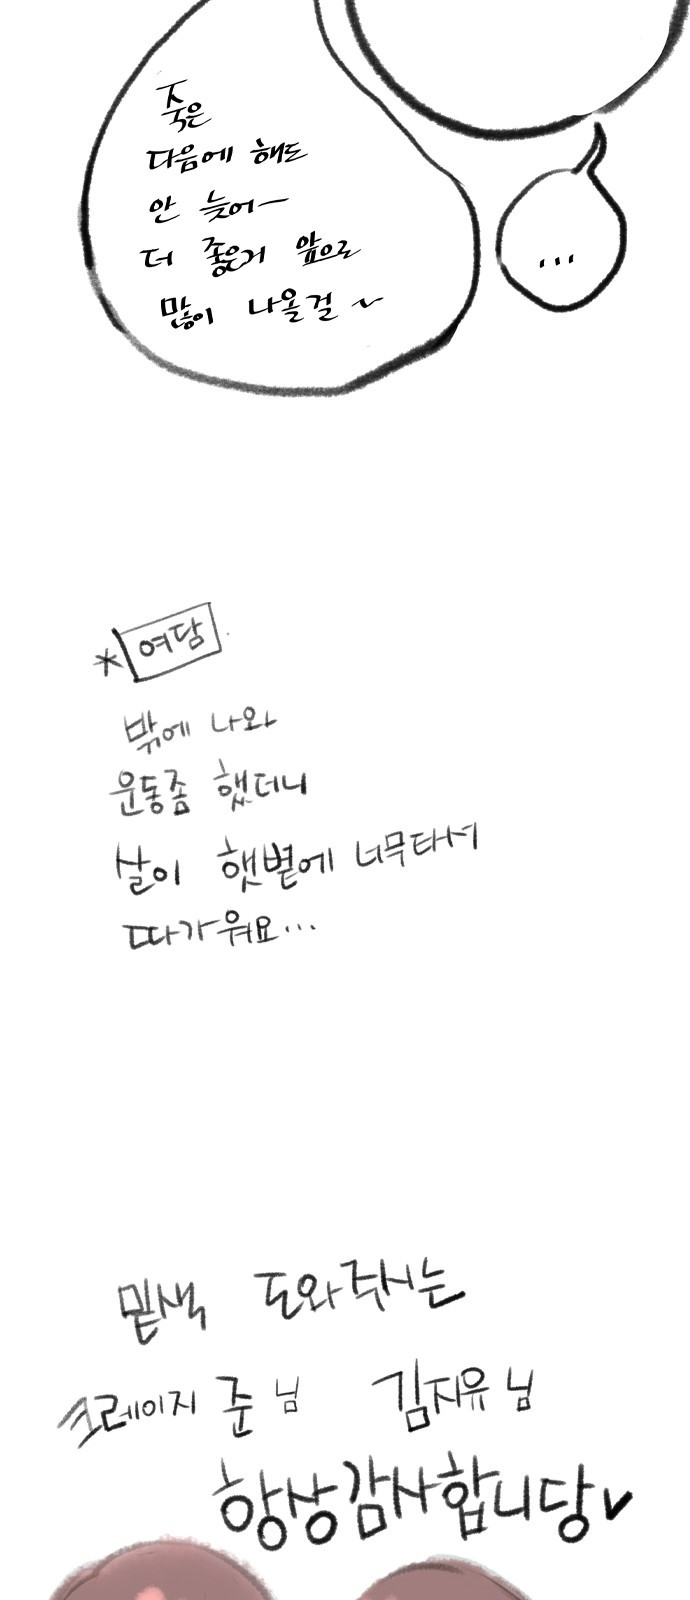 죽은
다음에 해도
안 늦어~
더 좋은거 앞으로
많이 나올걸~
...
*여담
밖에 나와
운동좀 했더니
살이 햇볕에 너무타서
따가워요...
밑색 도와주시는
크레이지 준 님 김지유 님
항상감사합니당♥